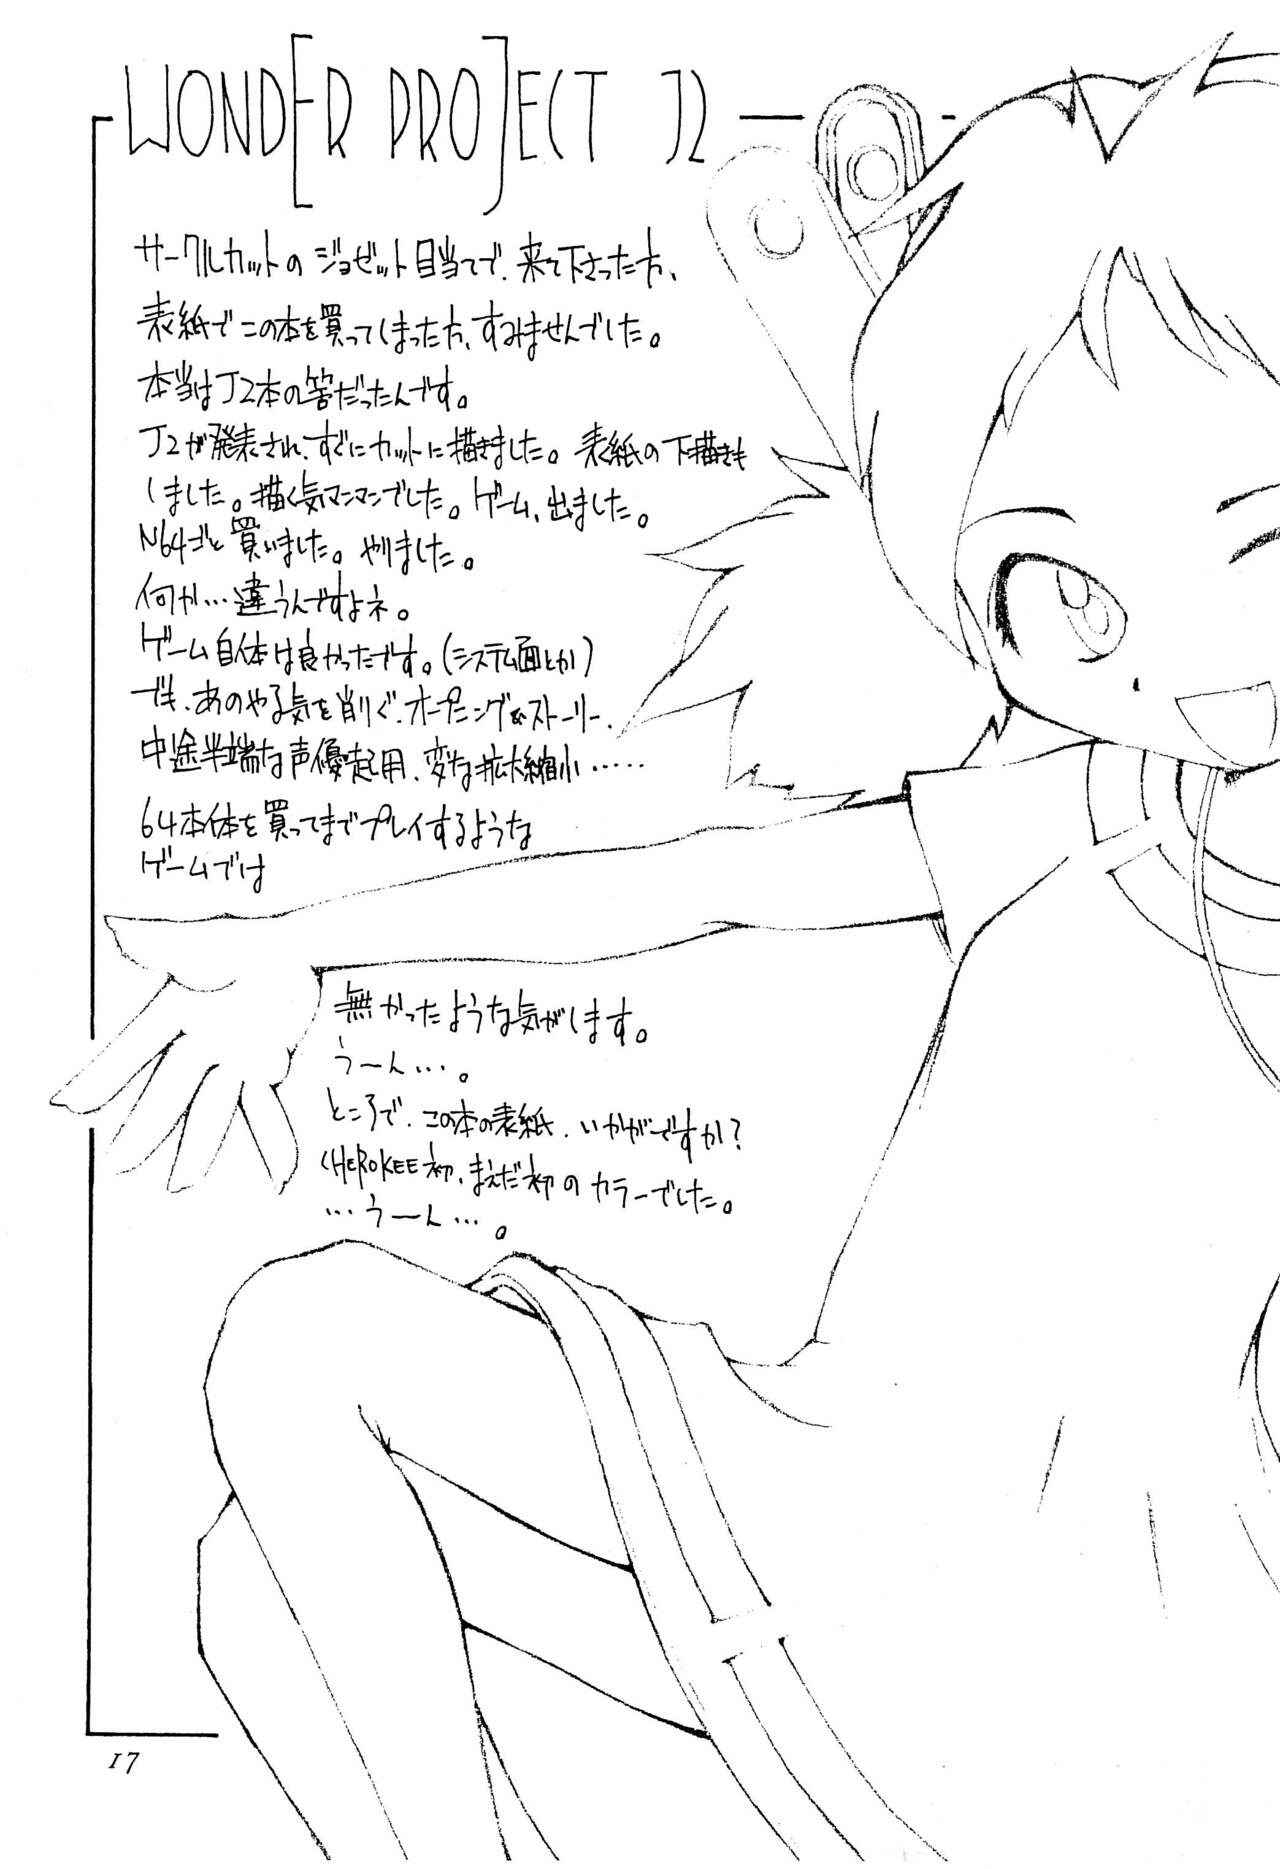 WONDER PROJECT J2
サークルカットのジョゼット目当てで、来て下さった方、
表紙でこの本を買ってしまった方、すみませんでした。
本当はJ2本の筈だったんです。
J2が発表され、すぐにカットに描きました。表紙の下描きも
しました。描く気マンマンでした。ゲーム、出ました。
N64ごと買いました。やりました。
何か…違うんですよネ。
ゲーム自体は良かったです。(システム面とか)
でも、あのやる気を削ぐ、オープニング&ストーリー、
中途半端な声優起用、変な拡大縮小……
64本体を買ってまでプレイするような
ゲームでは
無かったような気がします。
うーん…。
ところで、この本の表紙、いかがですか？
CHEROKEE初、まえだ初のカラーでした。
…うーん…。
17